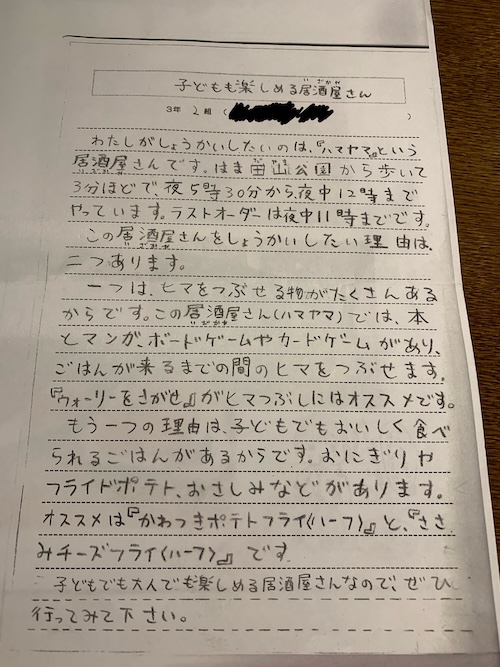 子どもも楽しめる居酒屋さん
3年 2組 ( )
わたしがしょうかいしたいのは、『ハマヤマ』という
居酒屋さんです。はま田山公園から歩いて
3分ほどで夜5時30分から夜中12時まで
やっています。ラストオーダーは夜中11時までです。
この居酒屋さんをしょうかいしたい理由は、
二つあります。
一つは、ヒマをつぶせる物がたくさんある
からです。この居酒屋さん(ハマヤマ)では、本
とマンガ、ボードゲームやカードゲームがあり、
ごはんが来るまでの間のヒマをつぶせます。
『ウォーリーをさがせ』がヒマつぶしにはオススメです。
もう一つの理由は、子どもでもおいしく食べ
られるごはんがあるからです。おにぎりや
フライドポテト、おさしみなどがあります。
オススメは『かわつきポテトフライ(ハーフ)』と、『ささ
みチーズフライ(ハーフ)』です
子どもでも大人でも楽しめる居酒屋さんなので、ぜひ
行ってみて下さい。